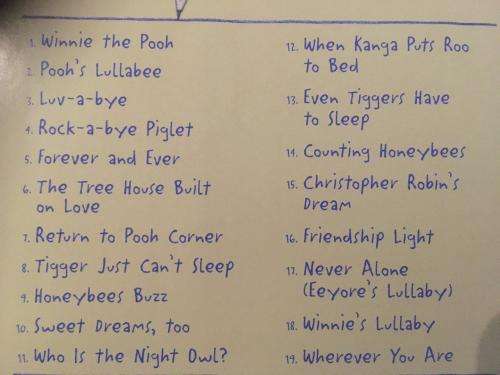 1. Winnie the Pooh
2. Pooh's Lullabee
3. Luv-a-bye
4. Rock-a-bye Piglet
5. Forever and Ever
6. The Tree House Built
on Love
7. Return to Pooh Corner
8. Tigger Just Can't Sleep
9. Honeybees Buzz
10. Sweet Dreams, too
11. Who Is the Night Owl?
12. When Kanga Puts Roo
to Bed
13. Even Tiggers Have
to Sleep
14. Counting Honeybees
15. Christopher Robin's
Dream
16. Friendship Light
17. Never Alone
(Eeyore's Lullaby)
18. Winnie's Lullaby
19. Wherever You Are